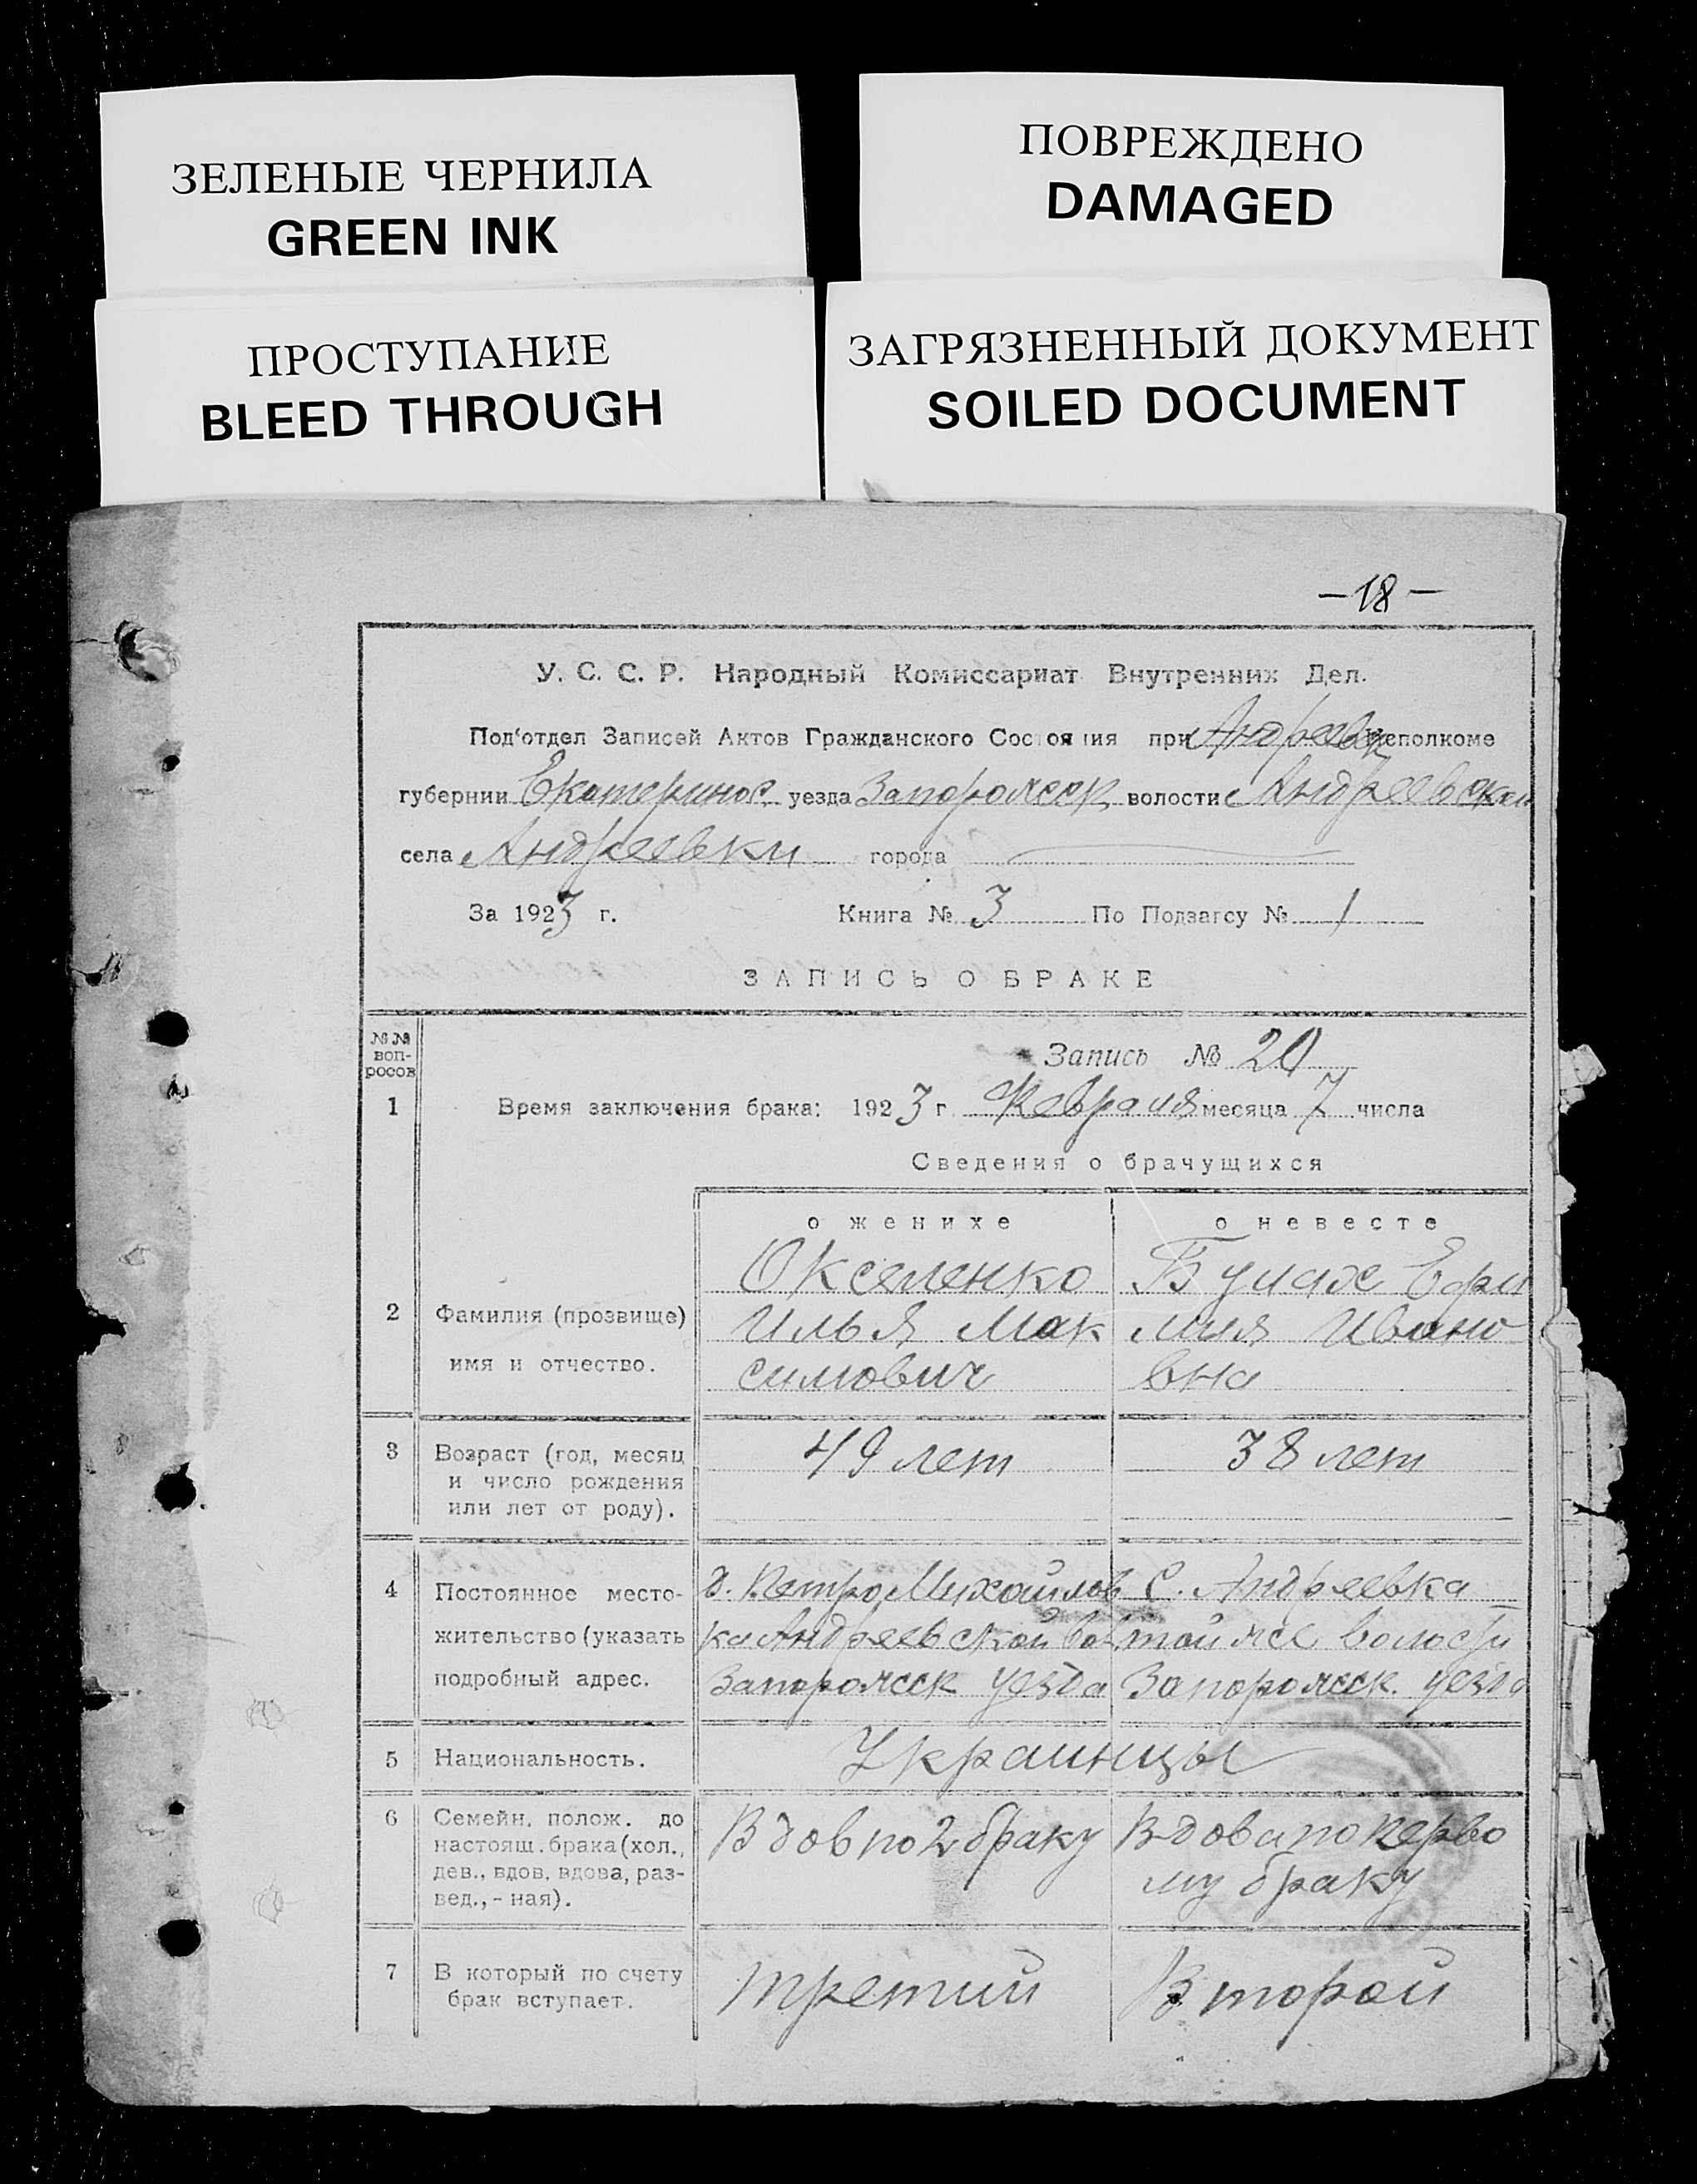 ЗЕЛЕНЫЕ ЧЕРНИЛА
GREEN INK
ПОВРЕЖДЕНО
DAMAGED
ПРОСТУПАНИЕ
BLEED THROUGH
ЗАГРЯЗНЕННЫЙ ДОКУМЕНТ
SOILED DOCUMENT
— 18 —
У. С. С. Р. Народный Комиссариат Внутренних Дел.
Под'отдел Записей Актов Гражданского Состояния при Андреевск исполкоме
губернии Екатеринос. уезда Запорожск. волости Андреевской
села Андреевки города
За 1923 г. Книга № 3 По Подзагсу № 1
ЗАПИСЬ О БРАКЕ
№№ воп-росов
Запись № 20
1 Время заключения брака: 1923 г. Февраля месяца 7 числа
Сведения о брачущихся
о женихе о невесте
2 Фамилия (прозвище)
имя и отчество.
Окселенко
Илья Мак
симович
Булах Ефи
мия Ивано
вна
3 Возраст (год, месяц
и число рождения
или лет от роду).
49 лет 38 лет
4 Постоянное место-
жительство (указать
подробный адрес.
д. ПетроМихайлов
ка Андреевской вол
Запорожск уезда
С. Андреевка
той же волости
Запорожск. уезда
5 Национальность. Украинцы
6 Семейн. полож. до
настоящ. брака (хол.,
дев., вдов, вдова, раз-
вед., - ная).
Вдов по 2 браку
Вдова по перво
му браку
7 В который по счету
брак вступает.
третий Второй